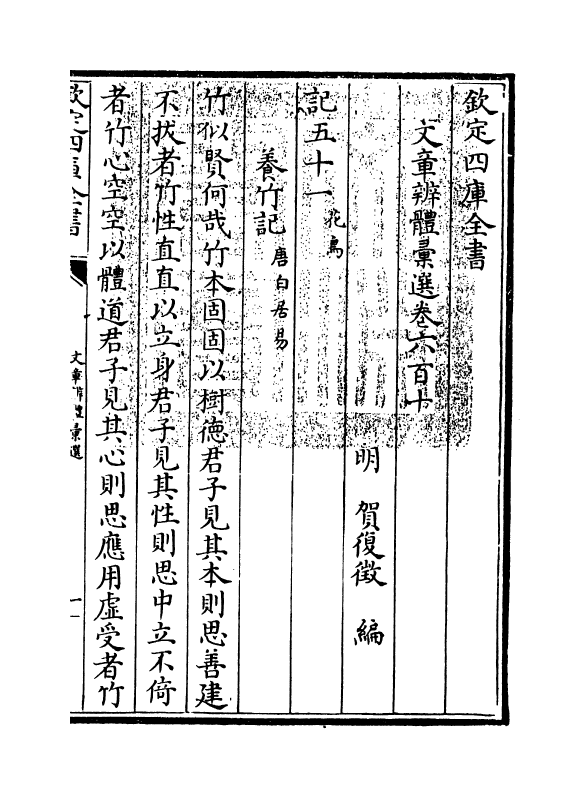 欽定四庫全書
文章辨體彙選卷六百十
明 賀復徵 編
記五十一 花鳥
養竹記 唐白居易
竹似賢何哉竹本固固以樹德君子見其本則思善建
不拔者竹性直直以立身君子見其性則思中立不倚
者竹心空空以體道君子見其心則思應用虛受者竹
欽定四庫全書
文章辨體彙選
一